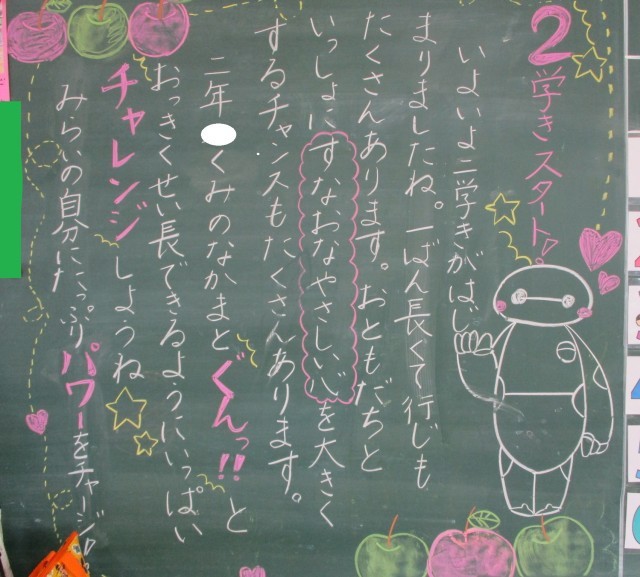 2学きスタート!
いよいよ二学きがはじ
まりましたね。一ばん長くて行じも
たくさんあります。おともだちと
いっしょにすなおなやさしい心を大きく
するチャンスもたくさんあります。
二年くみのなかまとぐんっ!!と
おっきくせい長できるようにいっぱい
チャレンジしようね
みらいの自分にたっぷりパワーをチャージ!